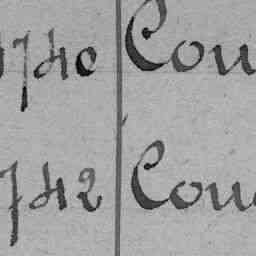 1740 Cou
1742 Cou